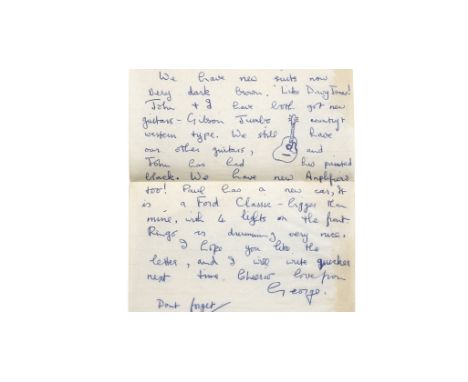 We have new suits now
very dark brown. Like Davy Jones!
John + I have both got new
guitars - Gibson Jumbo country +
western type. We still have
our other guitars, and
John has had his painted
black. We have new Amplifiers
too! Paul has a new car, It
is a Ford Classic - bigger than
mine, with 4 lights on the front
Ringo is drumming very nice.
I hope you like the
letter, and I will write quicker
next time. Cheerio love from
George.
Dont forget